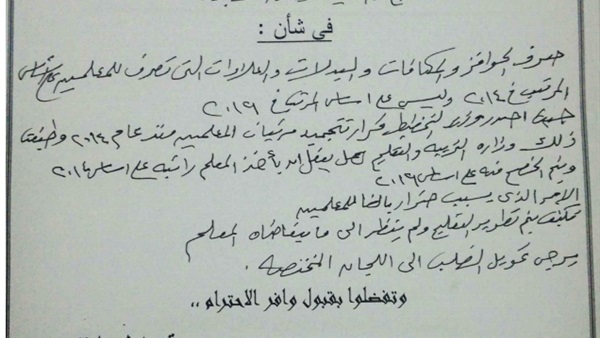 في شأن :
صرف الحوافز والمكافات والبدلات والعلاوات التى تصرف للمعلمين على أساس
المرتب في ٢٠١٤ وليس على اساس المرتب في ٢٠١٩
حيث اصدر وزير التخطيط قرار تجميد مرتبات المعلمين منذ عام ٢٠١٤ وطبقت
ذالك وزاره التربيه والتعليم هل يعقل ان يأخذ المعلم راتبه على اساس ٢٠١٤
ويتم الخصم منه على اساس ٢٠١٩
الامر الذى يسبب ضرار بالغا للمعلمين
فكيف يتم تطوير التعليم ولم ينظر الى ما يتقاضاه المعلم
يرجى تحويل الطلب الى اللجان المختصه .
وتفضلوا بقبول وافر الاحترام ،،